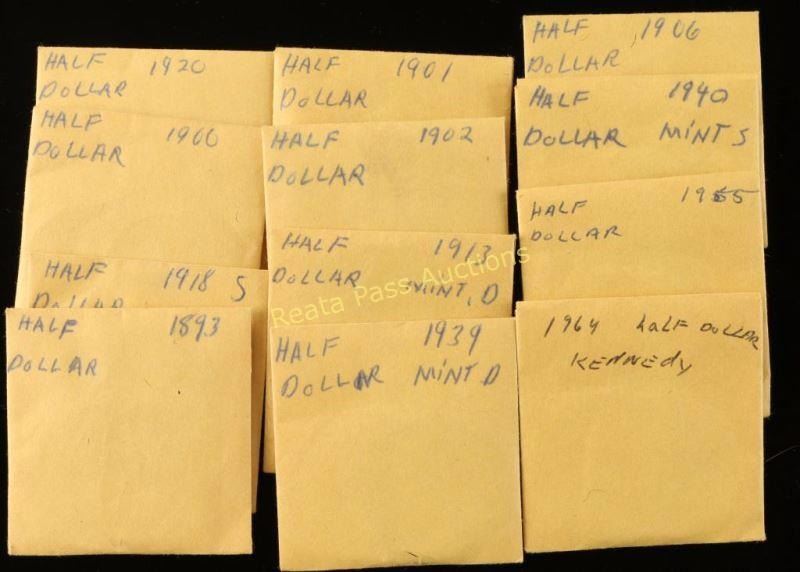 HALF 1920
DOLLAR
HALF 1900
DOLLAR
HALF 1918 S
DOLLAR
HALF 1893
DOLLAR
HALF 1901
DOLLAR
HALF 1902
DOLLAR
HALF 1913
DOLLAR MINT D
HALF 1939
DOLLAR MINT D
HALF 1906
DOLLAR
HALF 1940
DOLLAR MINT S
HALF 1955
DOLLAR
1964 HALF DOLLAR
KENNEDY
Reata Pass Auctions